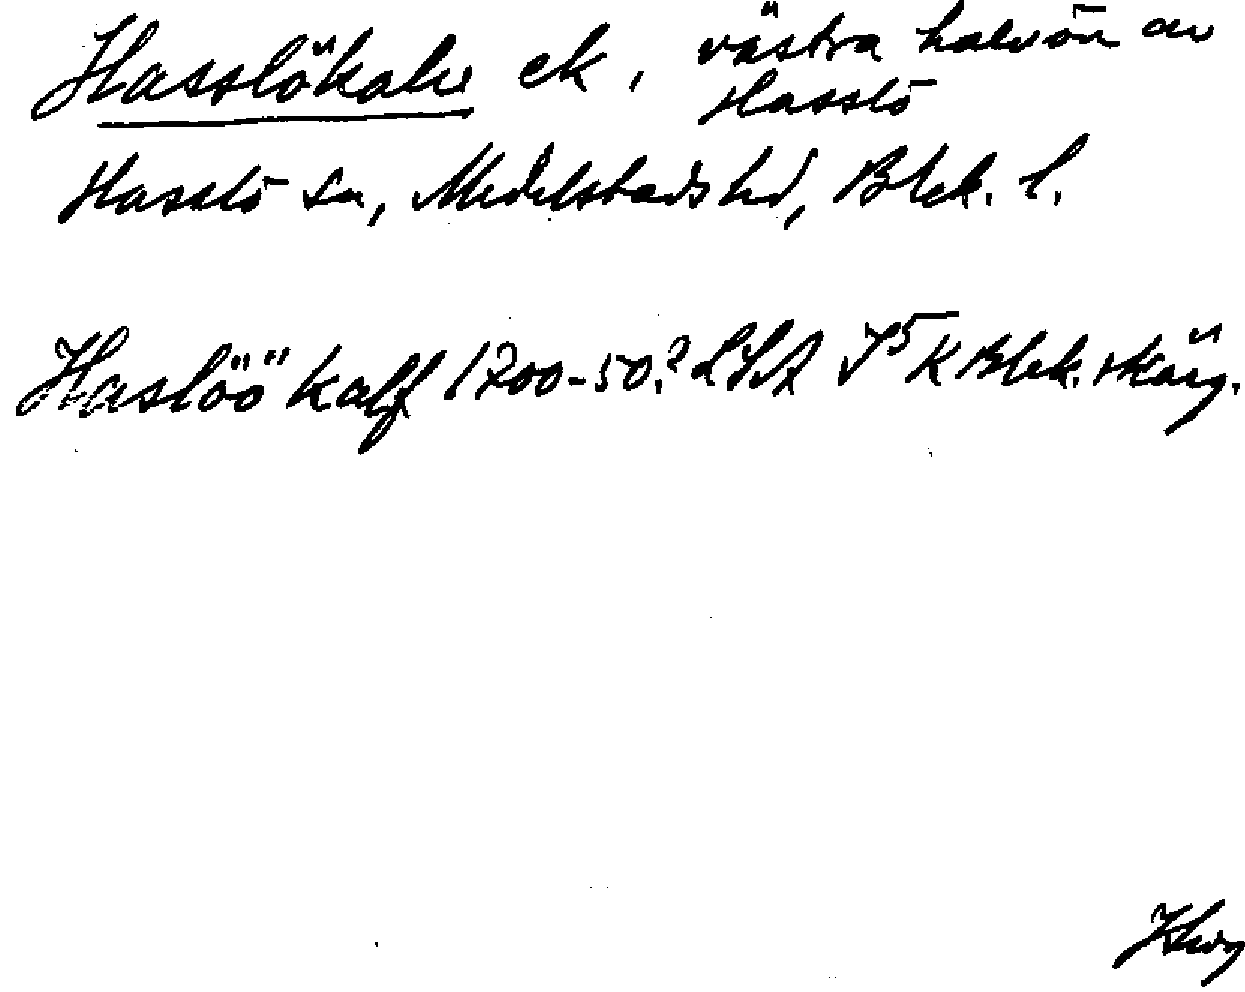 Hasslökalv ek, västra halvön av
Hasslö
Hasslö sn, Medelstads hd, Blek. l.
Haslöö kalf 1700-50? LSA S5 K Blek. skärg.